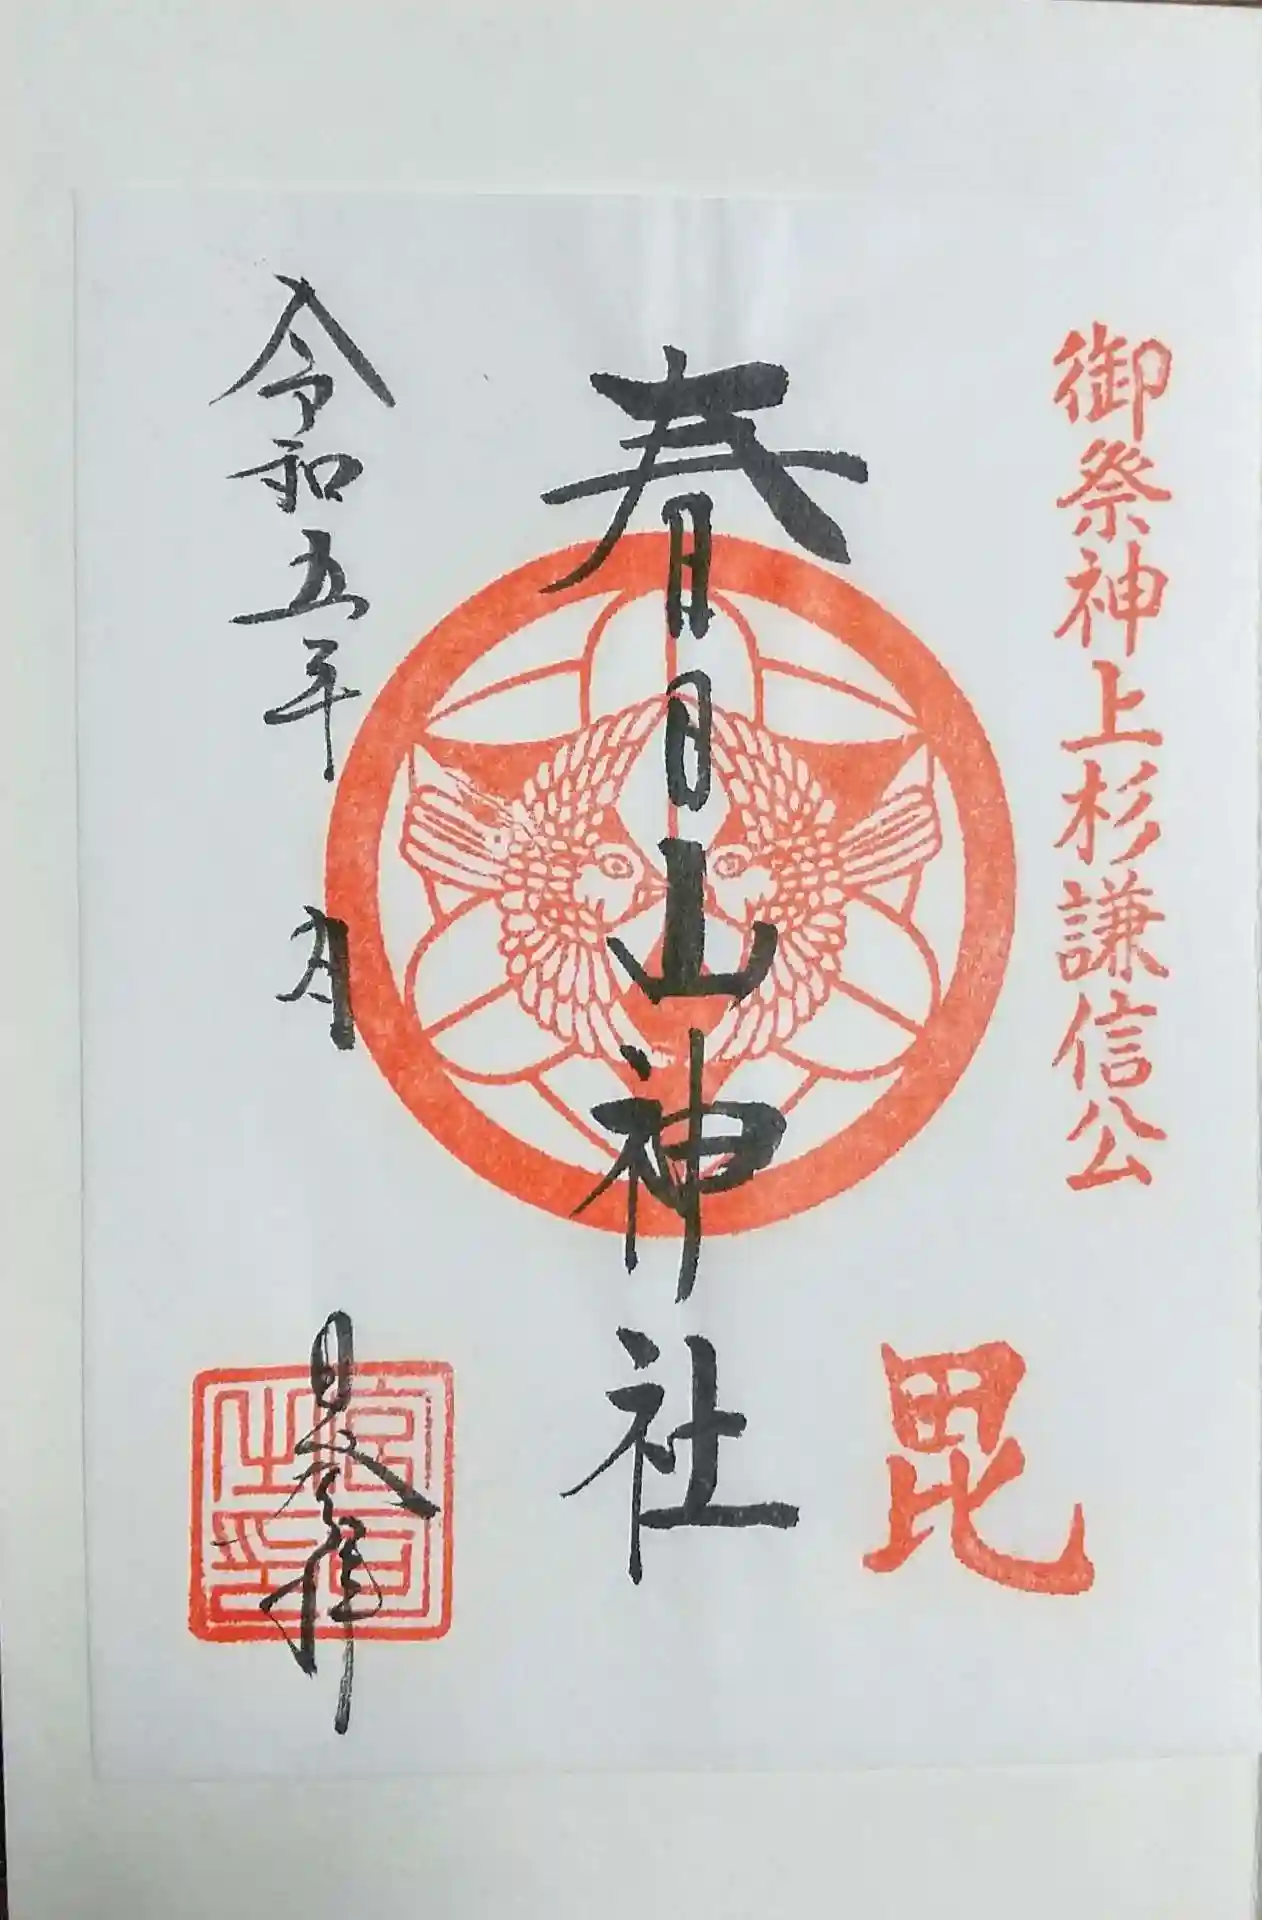 御祭神上杉謙信公
毘
春日山神社
令和五年 月 日参拝
宮司之印